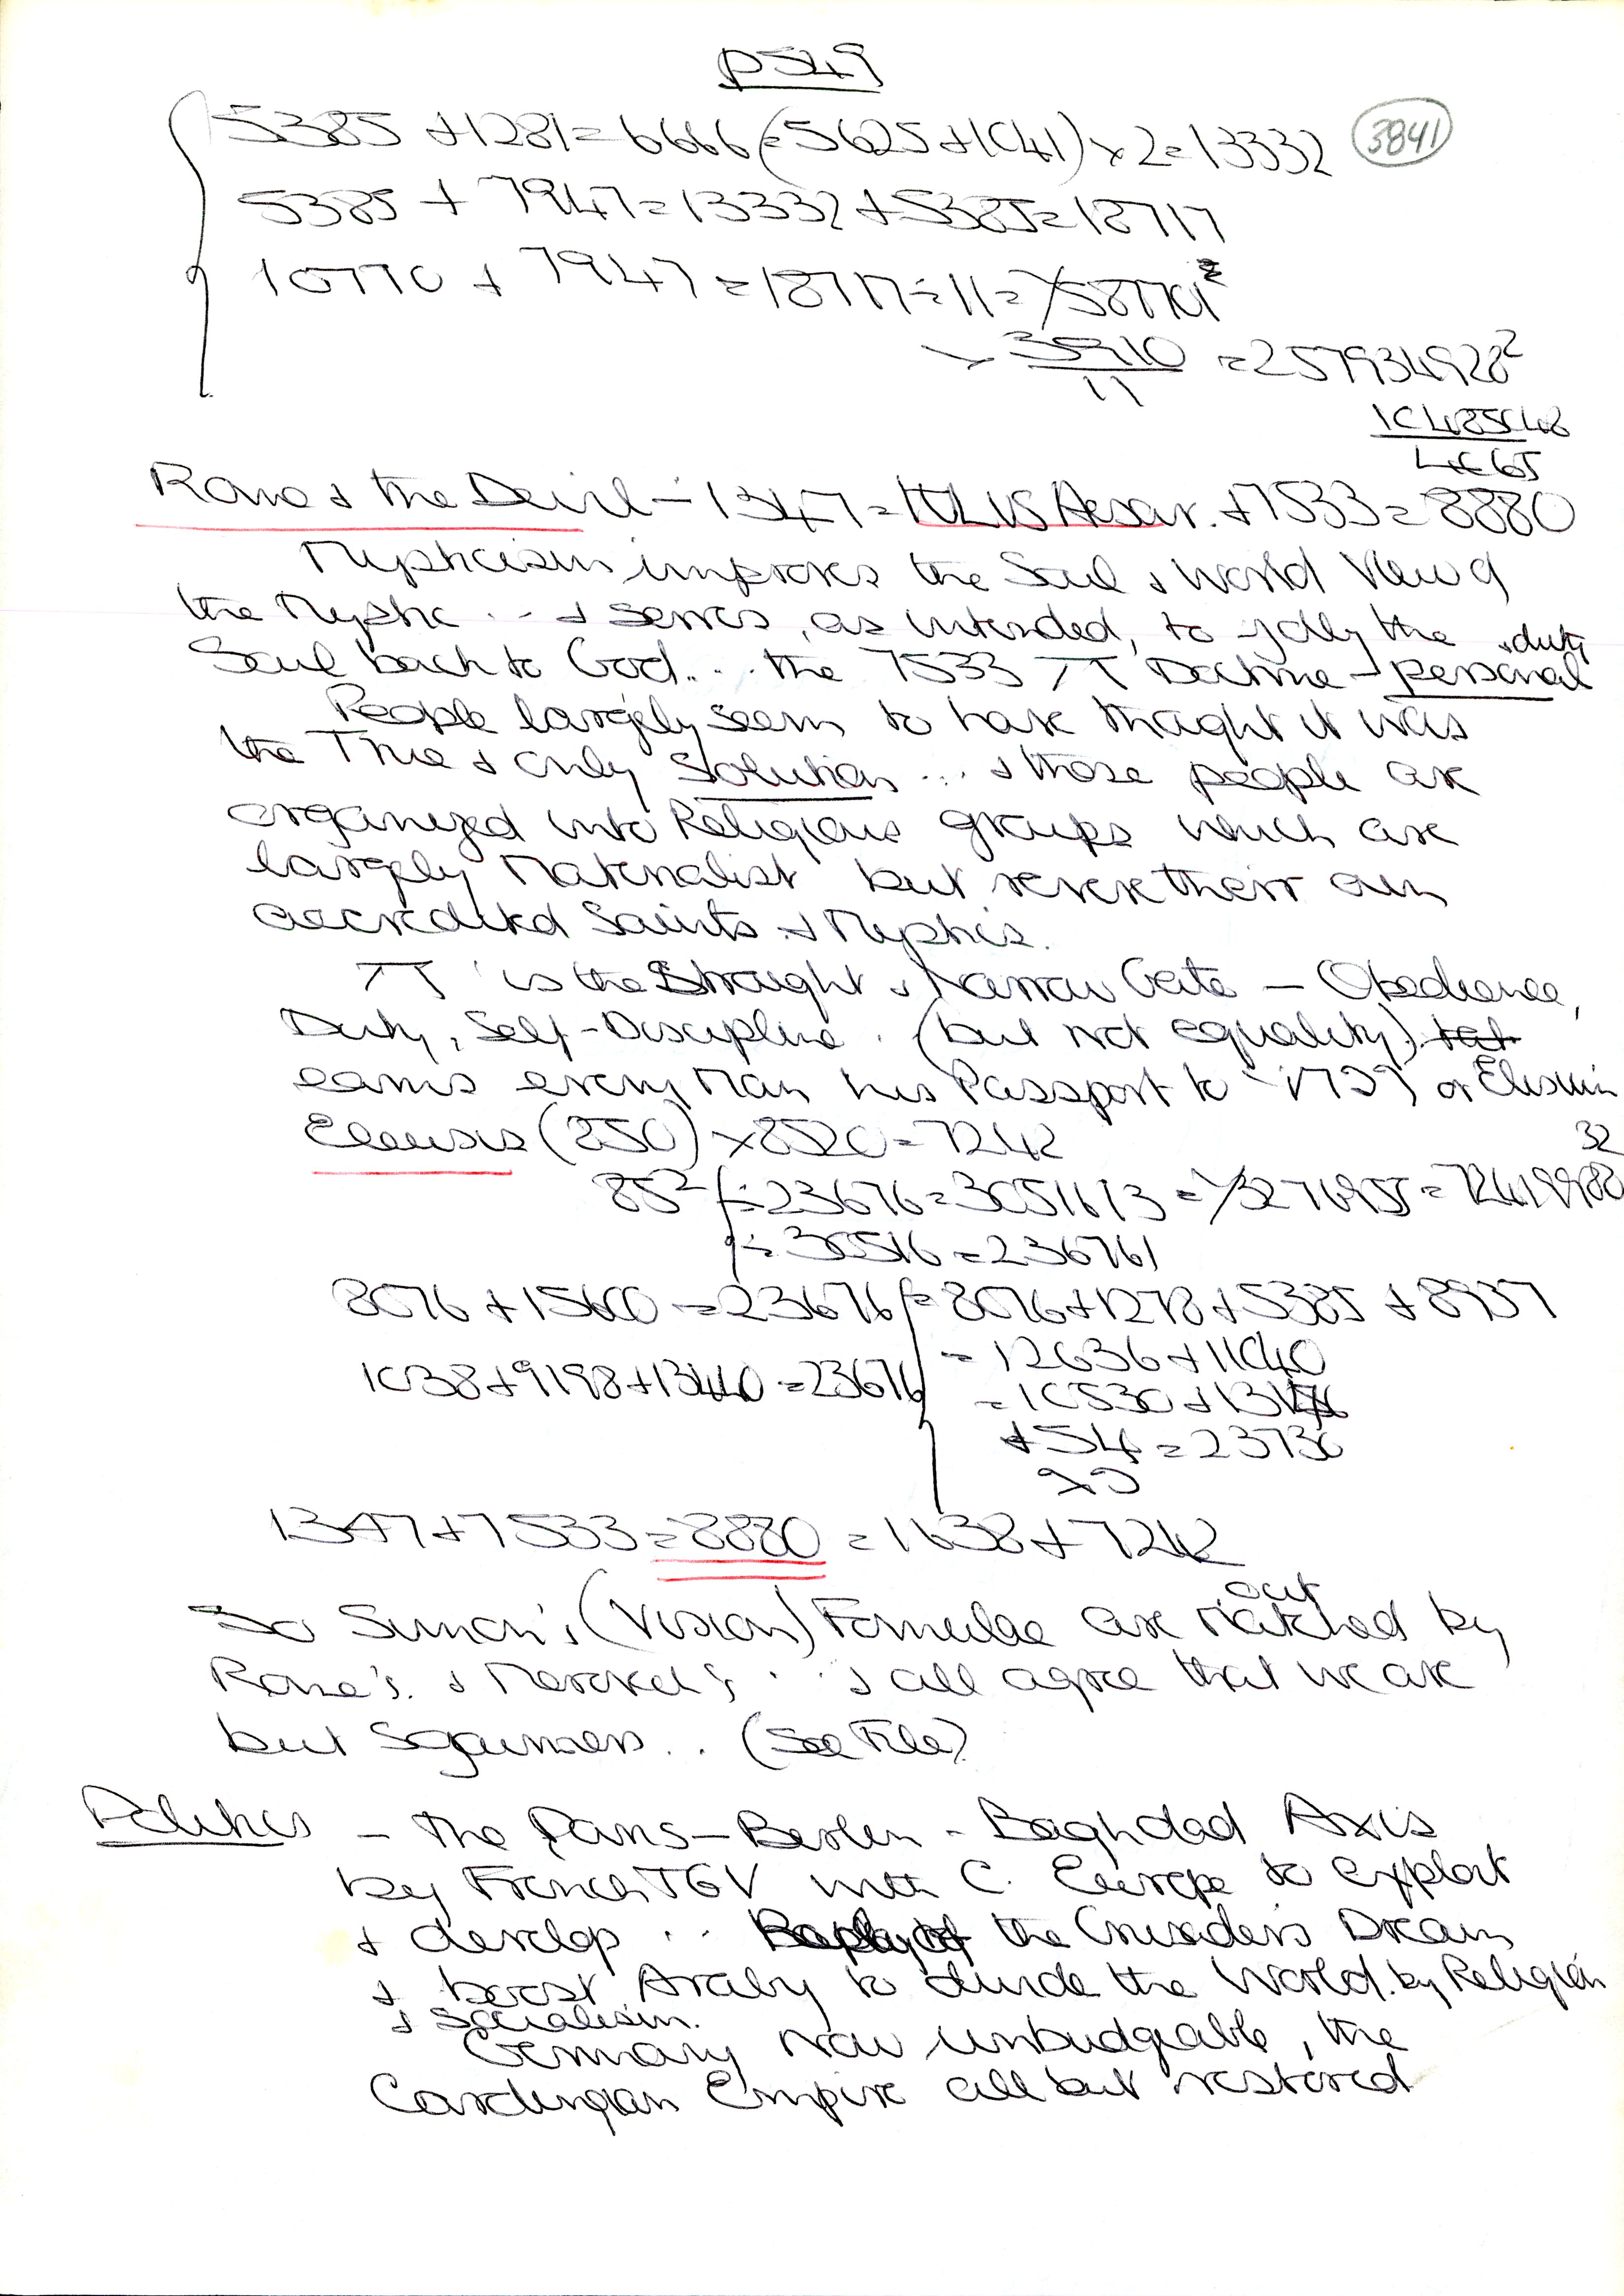 p549
3841
5385 + 1281 = 6666 (= 5625 + 1041) x 2 = 13332
5385 + 7947 = 13332 + 5385 = 18717
10770 + 7947 = 18717 ÷ 11 =
3910 / 11 = 257934928²
Rome & the Devil – 1347 = Aesar. + 7533 = 8880
Mysticism improves the Soul & World View of
the Mystic ... & serves, as intended, to jolly the
Soul back to God.... the 7533 π Doctrine – personal & duty
People largely seem to have thought it was
the True & only Solution ... & those people are
organized into Religious groups which are
largely Materialist but revere their own
accredited Saints & Mystics.
π is the Straight & Narrow Gate – Obedience,
Duty, Self-Discipline. (but not equality)
earns every Man his Passport to or
Eleusis (850) x 8520 = 7242
85² ÷ 23676 = 3051613 =
÷ 30516 = 236761
8076 + 15600 = 23676 = 8076 + 1278 + 5385 + 8937
= 12636 + 11040
1038 + 9198 + 13440 = 23676
= 10530 +
+ 54 = 23730
1347 + 7533 = 8880 = 1638 + 7242
So Simon's (Vision) Formulae are Matched out by
Rome's. & ... & all agree that we are
but Sojourners.. (See File)
Politics – The Paris – Berlin - Baghdad Axis
by French TGV with C. Europe to exploit
& develop ... the Crusaders Dream
& boost Araby to divide the World. by Religion
& Socialism.
Germany now unbudgeable, the
Carolingian Empire all but restored